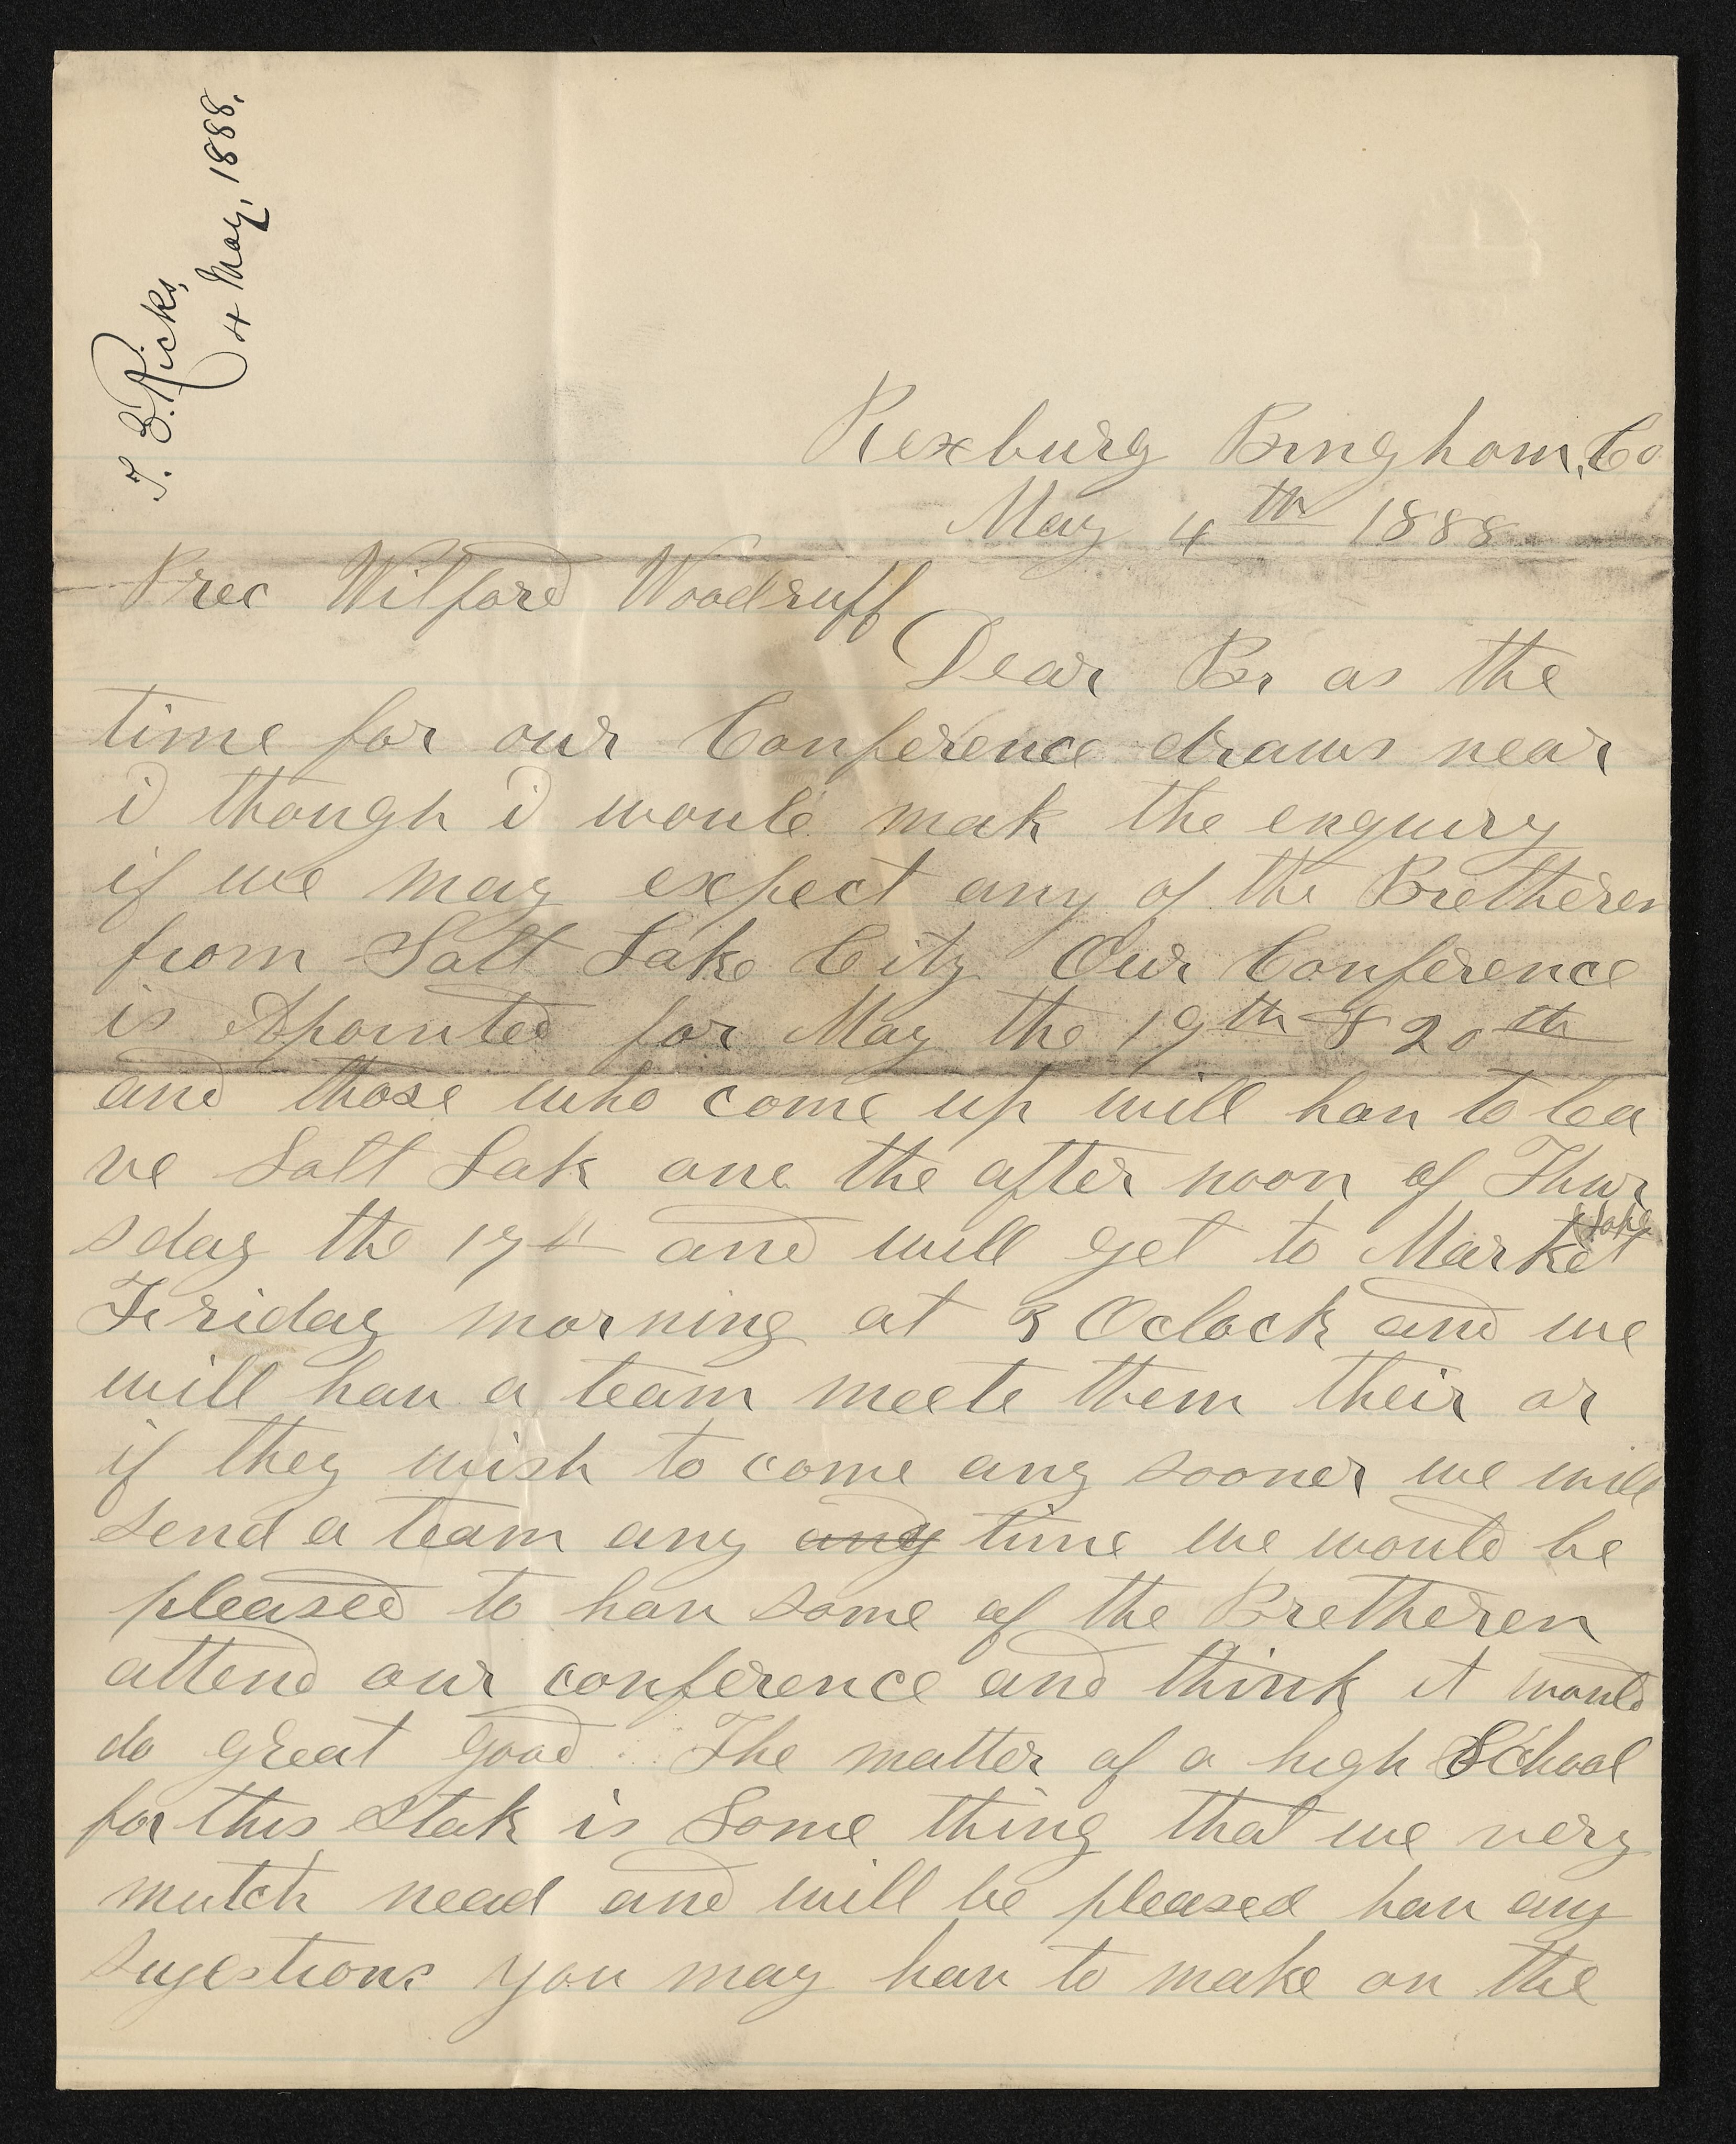 T. E. Ricks,
4 May, 1888.
Rexburg Bingham, Co
May 4th 1888
Prec Wilford Woodruff
Dear Br as the
time for our Conference draws near
i though i would mak the enquiry
if we may expect any of the Bretheren
from Salt Lake City Our Conference
is Apointed for May the 19th & 20th
and those who come up will hav to lea
ve Salt Lak one the after noon of Thur
sday the 17th and will get to Market
Lake
Friday morning at 3 Oclock and we
will hav a team meete them their or
if they wish to come any sooner we will
send a team any any time we would be
pleased to hav some of the Bretheren
attend our conference and think it would
do great good The matter of a high School
for this Stak is Some thing that we very
mutch nead and will be pleased hav any
sugestions you may hav to make on the